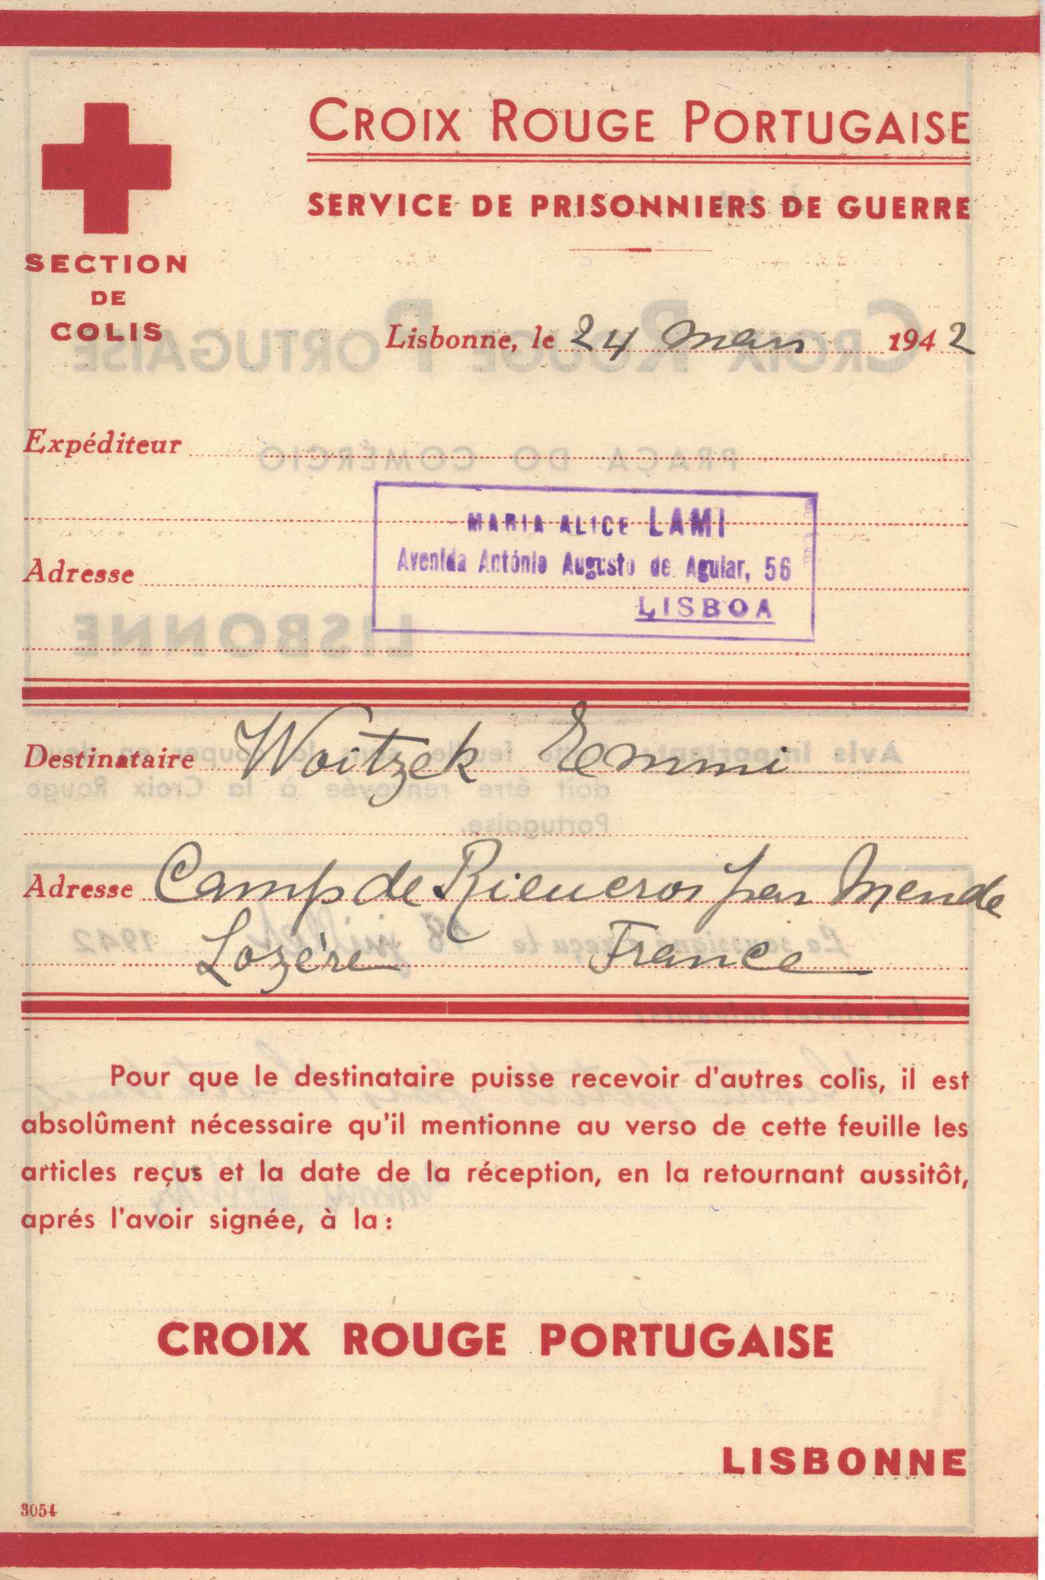 CROIX ROUGE PORTUGAISE
SERVICE DE PRISONNIERS DE GUERRE
SECTION
DE
COLIS
Lisbonne, le 24 mars 1942
Expéditeur
MARIA ALICE LAMI
Adresse
Avenida António Augusto de Aguiar, 56
LISBOA
Destinataire Woitzek Emmi
Adresse Camp de Rieucros par Mende
Lozère France
Pour que le destinataire puisse recevoir d'autres colis, il est
absolûment nécessaire qu'il mentionne au verso de cette feuille les
articles reçus et la date de la réception, en la retournant aussitôt,
aprés l'avoir signée, à la:
CROIX ROUGE PORTUGAISE
LISBONNE
3054